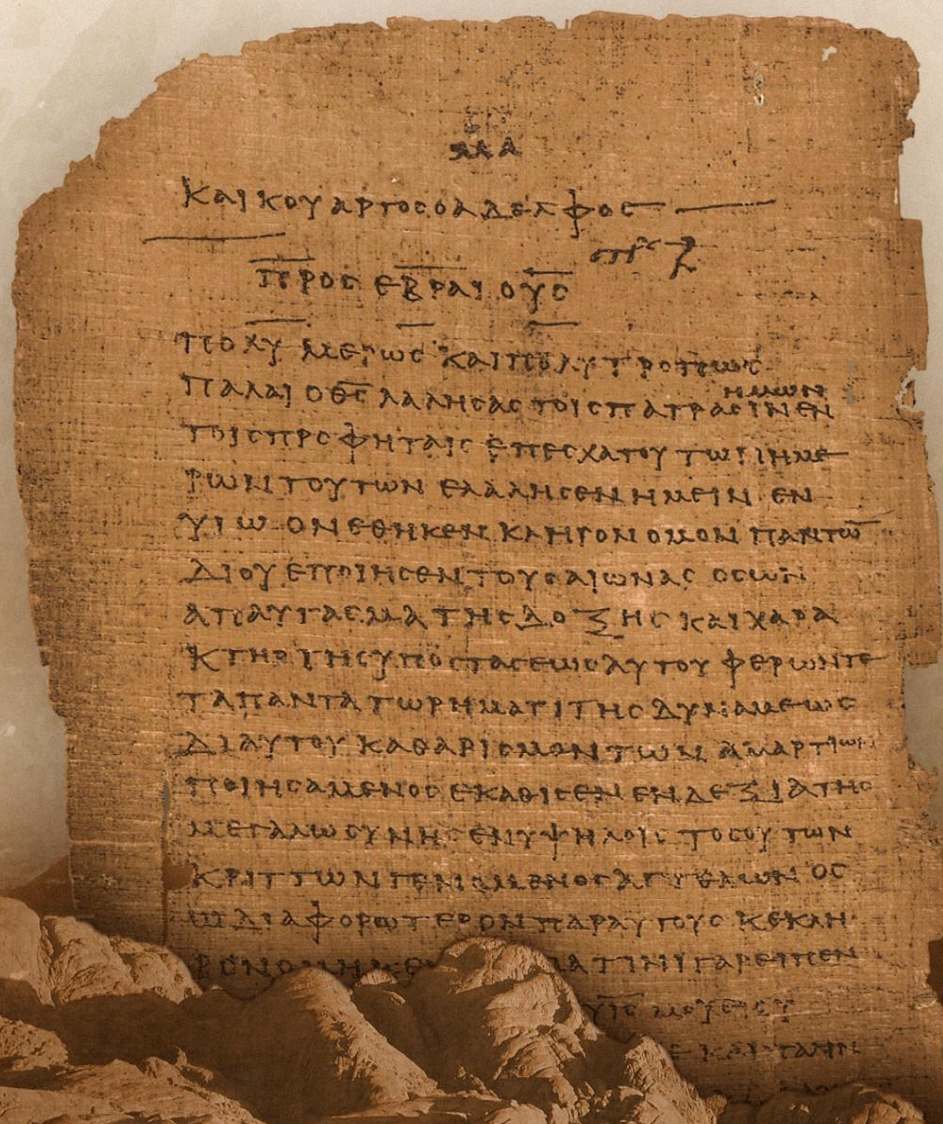 ΜΑ
ΚΑΙ ΚΟΥΑΡΤΟϹ Ο ΑΔΕΛΦΟϹ
ΠΡΟϹ ΕΒΡΑΙΟΥϹ
ΠΟΛΥΜΕΡΩϹ ΚΑΙ ΠΟΛΥΤΡΟΠΩϹ
ΗΜΩΝ
ΠΑΛΑΙ Ο Θ̅Ϲ̅ ΛΑΛΗϹΑϹ ΤΟΙϹ ΠΑΤΡΑϹΙΝ ΕΝ
ΤΟΙϹ ΠΡΟΦΗΤΑΙϹ ΕΠ ΕϹΧΑΤΟΥ ΤΩΝ ΗΜΕ
ΡΩΝ ΤΟΥΤΩΝ ΕΛΑΛΗϹΕΝ ΗΜΕΙΝ ΕΝ
ΥΙΩ ΟΝ ΕΘΗΚΕΝ ΚΛΗΡΟΝΟΜΟΝ ΠΑΝΤΩ̅
ΔΙ ΟΥ ΕΠΟΙΗϹΕΝ ΤΟΥϹ ΑΙΩΝΑϹ ΟϹ ΩΝ
ΑΠΑΥΓΑϹΜΑ ΤΗϹ ΔΟΞΗϹ ΚΑΙ ΧΑΡΑ
ΚΤΗΡ ΤΗϹ ΥΠΟϹΤΑϹΕΩϹ ΑΥΤΟΥ ΦΕΡΩΝ ΤΕ
ΤΑ ΠΑΝΤΑ ΤΩ ΡΗΜΑΤΙ ΤΗϹ ΔΥΝΑΜΕΩϹ
ΔΙ ΑΥΤΟΥ ΚΑΘΑΡΙϹΜΟΝ ΤΩΝ ΑΜΑΡΤΙΩΝ
ΠΟΙΗϹΑΜΕΝΟϹ ΕΚΑΘΙϹΕΝ ΕΝ ΔΕΞΙΑ ΤΗϹ
ΜΕΓΑΛΩϹΥΝΗϹ ΕΝ ΥΨΗΛΟΙϹ ΤΟϹΟΥΤΩΝ
ΚΡΙΤΤΩΝ ΓΕΝΟΜΕΝΟϹ ΑΓΓΕΛΩΝ ΟϹ
Ω ΔΙΑΦΟΡΩΤΕΡΟΝ ΠΑΡ ΑΥΤΟΥϹ ΚΕΚΛΗ
ΡΟΝΟΜΗΚΕΝ ΤΙΝΙ ΓΑΡ ΕΙΠΕΝ
Υ̅Ϲ̅ ΜΟΥ ΕΙ ϹΥ
ΚΑΙ ΠΑΛΙΝ